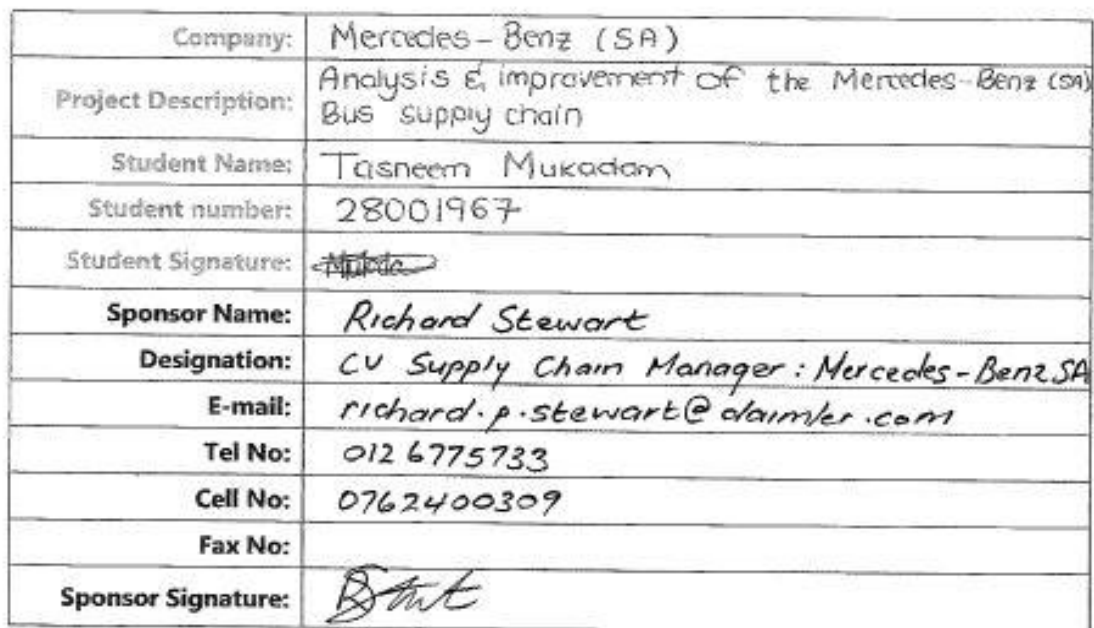 Company: Mercedes-Benz (SA)
Project Description: Analysis & improvement of the Mercedes-Benz (SA)
Bus supply chain
Student Name: Tasneem Mukadam
Student number: 28001967
Student Signature:
Sponsor Name: Richard Stewart
Designation: CV Supply Chain Manager: Mercedes-Benz SA
E-mail: richard.p.stewart@daimler.com
Tel No: 012 6775733
Cell No: 0762400309
Fax No:
Sponsor Signature: